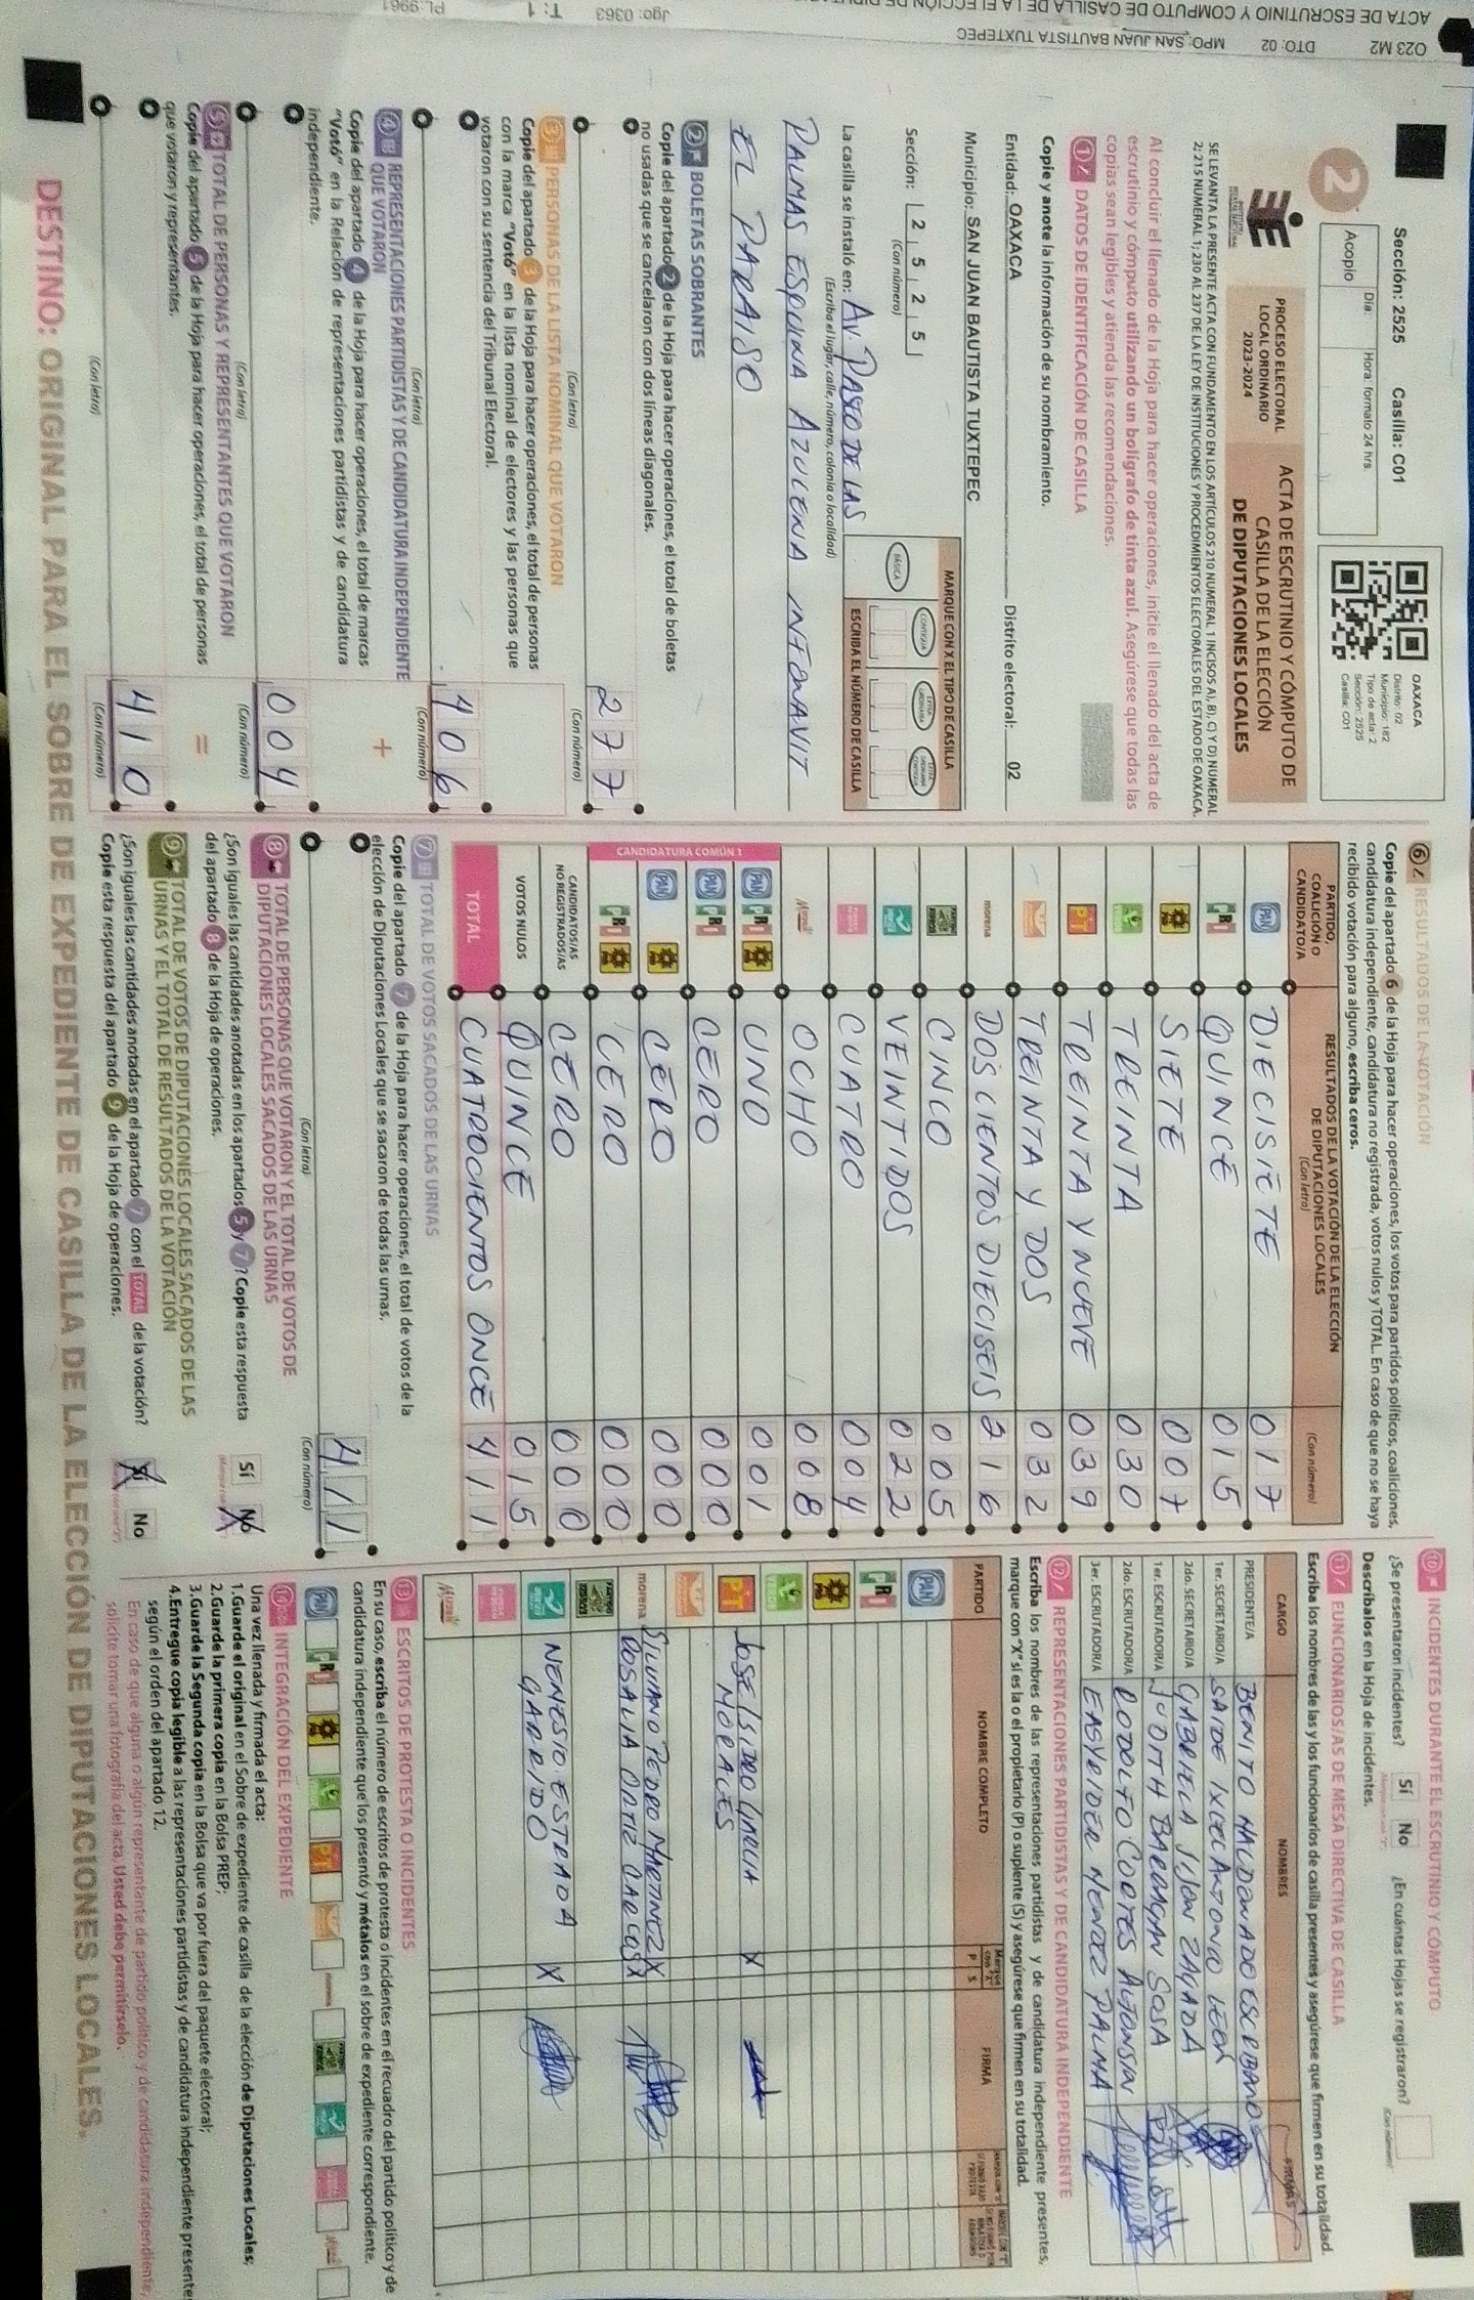 Sección: 2525 Casilla: C01
Día: Hora: formato 24 hrs.
Acopio
2
OAXACA
Distrito: 02
Municipio: 182
Tipo de acta: 2
Sección: 2525
Casilla: C01
PROCESO ELECTORAL
LOCAL ORDINARIO
2023-2024
ACTA DE ESCRUTINIO Y CÓMPUTO DE
CASILLA DE LA ELECCIÓN
DE DIPUTACIONES LOCALES
SE LEVANTA LA PRESENTE ACTA CON FUNDAMENTO EN LOS ARTÍCULOS 210 NUMERAL 1 INCISOS A), B), C) Y D) NUMERAL
2; 215 NUMERAL 1; 230 AL 237 DE LA LEY DE INSTITUCIONES Y PROCEDIMIENTOS ELECTORALES DEL ESTADO DE OAXACA.
Al concluir el llenado de la Hoja para hacer operaciones, inicie el llenado del acta de
escrutinio y cómputo utilizando un bolígrafo de tinta azul. Asegúrese que todas las
copias sean legibles y atienda las recomendaciones.
1 DATOS DE IDENTIFICACIÓN DE CASILLA
Copie y anote la información de su nombramiento.
Entidad: OAXACA Distrito electoral: 02
Municipio: SAN JUAN BAUTISTA TUXTEPEC
Sección: 2 5 2 5
(Con número)
MARQUE CON X EL TIPO DE CASILLA
BÁSICA CONTIGUA
ESCRIBA EL NÚMERO DE CASILLA
La casilla se instaló en: Av. PASEO DE LAS
(Escriba el lugar, calle, número, colonia o localidad)
PALMAS ESQUINA AZUCENA INFONAVIT
EL PARAISO
2 BOLETAS SOBRANTES
Copie del apartado 2 de la Hoja para hacer operaciones, el total de boletas
no usadas que se cancelaron con dos líneas diagonales.
277
(Con letra) (Con número)
3 PERSONAS DE LA LISTA NOMINAL QUE VOTARON
Copie del apartado 3 de la Hoja para hacer operaciones, el total de personas
con la marca "Votó" en la lista nominal de electores y las personas que
votaron con su sentencia del Tribunal Electoral.
406
(Con letra) (Con número)
4 REPRESENTACIONES PARTIDISTAS Y DE CANDIDATURA INDEPENDIENTE
QUE VOTARON
+
Copie del apartado 4 de la Hoja para hacer operaciones, el total de marcas
"Votó" en la Relación de representaciones partidistas y de candidatura
independiente.
004
(Con letra) (Con número)
5 TOTAL DE PERSONAS Y REPRESENTANTES QUE VOTARON
=
Copie del apartado 5 de la Hoja para hacer operaciones, el total de personas
que votaron y representantes.
410
(Con letra) (Con número)
6 RESULTADOS DE LA VOTACIÓN
Copie del apartado 6 de la Hoja para hacer operaciones, los votos para partidos políticos, coaliciones,
candidatura independiente, candidatura no registrada, votos nulos y TOTAL. En caso de que no se haya
recibido votación para alguno, escriba ceros.
PARTIDO,
COALICIÓN O
CANDIDATO/A
RESULTADOS DE LA VOTACIÓN DE LA ELECCIÓN
DE DIPUTACIONES LOCALES
(Con letra) (Con número)
PAN DIECISIETE 017
PRI QUINCE 015
PRD SIETE 007
TREINTA 030
PT TREINTA Y NUEVE 039
TREINTA Y DOS 032
morena DOSCIENTOS DIECISEIS 216
CINCO 005
VEINTIDOS 022
CUATRO 004
OCHO 008
CANDIDATURA COMÚN 1
PAN PRI PRD UNO 001
PAN PRI CERO 000
PAN PRD CERO 000
PRI PRD CERO 000
CANDIDATOS/AS
NO REGISTRADOS/AS CERO 000
VOTOS NULOS QUINCE 015
TOTAL CUATROCIENTOS ONCE 411
7 TOTAL DE VOTOS SACADOS DE LAS URNAS
Copie del apartado 7 de la Hoja para hacer operaciones, el total de votos de la
elección de Diputaciones Locales que se sacaron de todas las urnas.
411
(Con letra) (Con número)
8 TOTAL DE PERSONAS QUE VOTARON Y EL TOTAL DE VOTOS DE
DIPUTACIONES LOCALES SACADOS DE LAS URNAS
¿Son iguales las cantidades anotadas en los apartados 5 y 7? Copie esta respuesta
del apartado 8 de la Hoja de operaciones.
Sí No X
9 TOTAL DE VOTOS DE DIPUTACIONES LOCALES SACADOS DE LAS
URNAS Y EL TOTAL DE RESULTADOS DE LA VOTACIÓN
¿Son iguales las cantidades anotadas en el apartado 7 con el TOTAL de la votación?
Copie esta respuesta del apartado 9 de la Hoja de operaciones.
Sí X No
10 INCIDENTES DURANTE EL ESCRUTINIO Y CÓMPUTO
¿Se presentaron incidentes? Sí No ¿En cuántas Hojas se registraron?
(Con número)
Descríbalos en la Hoja de incidentes.
11 FUNCIONARIOS/AS DE MESA DIRECTIVA DE CASILLA
Escriba los nombres de las y los funcionarios de casilla presentes y asegúrese que firmen en su totalidad.
CARGO NOMBRES FIRMAS
PRESIDENTE/A BENITO MALDONADO ESCRIBANO
1er. SECRETARIO/A SAIDE IXCEL ANTONIO LEON
2do. SECRETARIO/A GABRIELA SIJON ZAVADA
1er. ESCRUTADOR/A JUDITH BARRAGAN SOSA
2do. ESCRUTADOR/A RODOLFO CORTES ALFONSIN
3er. ESCRUTADOR/A EASYRIDER MENDEZ PALMA
12 REPRESENTACIONES PARTIDISTAS Y DE CANDIDATURA INDEPENDIENTE
Escriba los nombres de las representaciones partidistas y de candidatura independiente presentes,
marque con "X" si es la o el propietario (P) o suplente (S) y asegúrese que firmen en su totalidad.
PARTIDO NOMBRE COMPLETO P S FIRMA
PAN
PRI
PRD
PT JOSE ISIDRO GARCIA X
MORALES
morena SILVANO PEDRO MARTINEZ X
ROSALIA ORTIZ CARCOS X
NEMESIO ESTRADA X
GARRIDO
13 ESCRITOS DE PROTESTA O INCIDENTES
En su caso, escriba el número de escritos de protesta o incidentes en el recuadro del partido político y de
candidatura independiente que los presentó y métalos en el sobre de expediente correspondiente.
PAN PRI PRD PT morena
14 INTEGRACIÓN DEL EXPEDIENTE
Una vez llenada y firmada el acta:
1.Guarde el original en el Sobre de expediente de casilla de la elección de Diputaciones Locales;
2.Guarde la primera copia en la Bolsa PREP;
3.Guarde la Segunda copia en la Bolsa que va por fuera del paquete electoral;
4.Entregue copia legible a las representaciones partidistas y de candidatura independiente presentes
según el orden del apartado 12.
En caso de que alguna o algún representante de partido político y de candidatura independiente,
solicite tomar una fotografía del acta. Usted debe permitírselo.
DESTINO: ORIGINAL PARA EL SOBRE DE EXPEDIENTE DE CASILLA DE LA ELECCIÓN DE DIPUTACIONES LOCALES.
023 M2 DTO: 02 MPO: SAN JUAN BAUTISTA TUXTEPEC
ACTA DE ESCRUTINIO Y COMPUTO DE CASILLA DE LA ELECCIÓN DE
Jgo: 0363 T: 1 PL: 9961